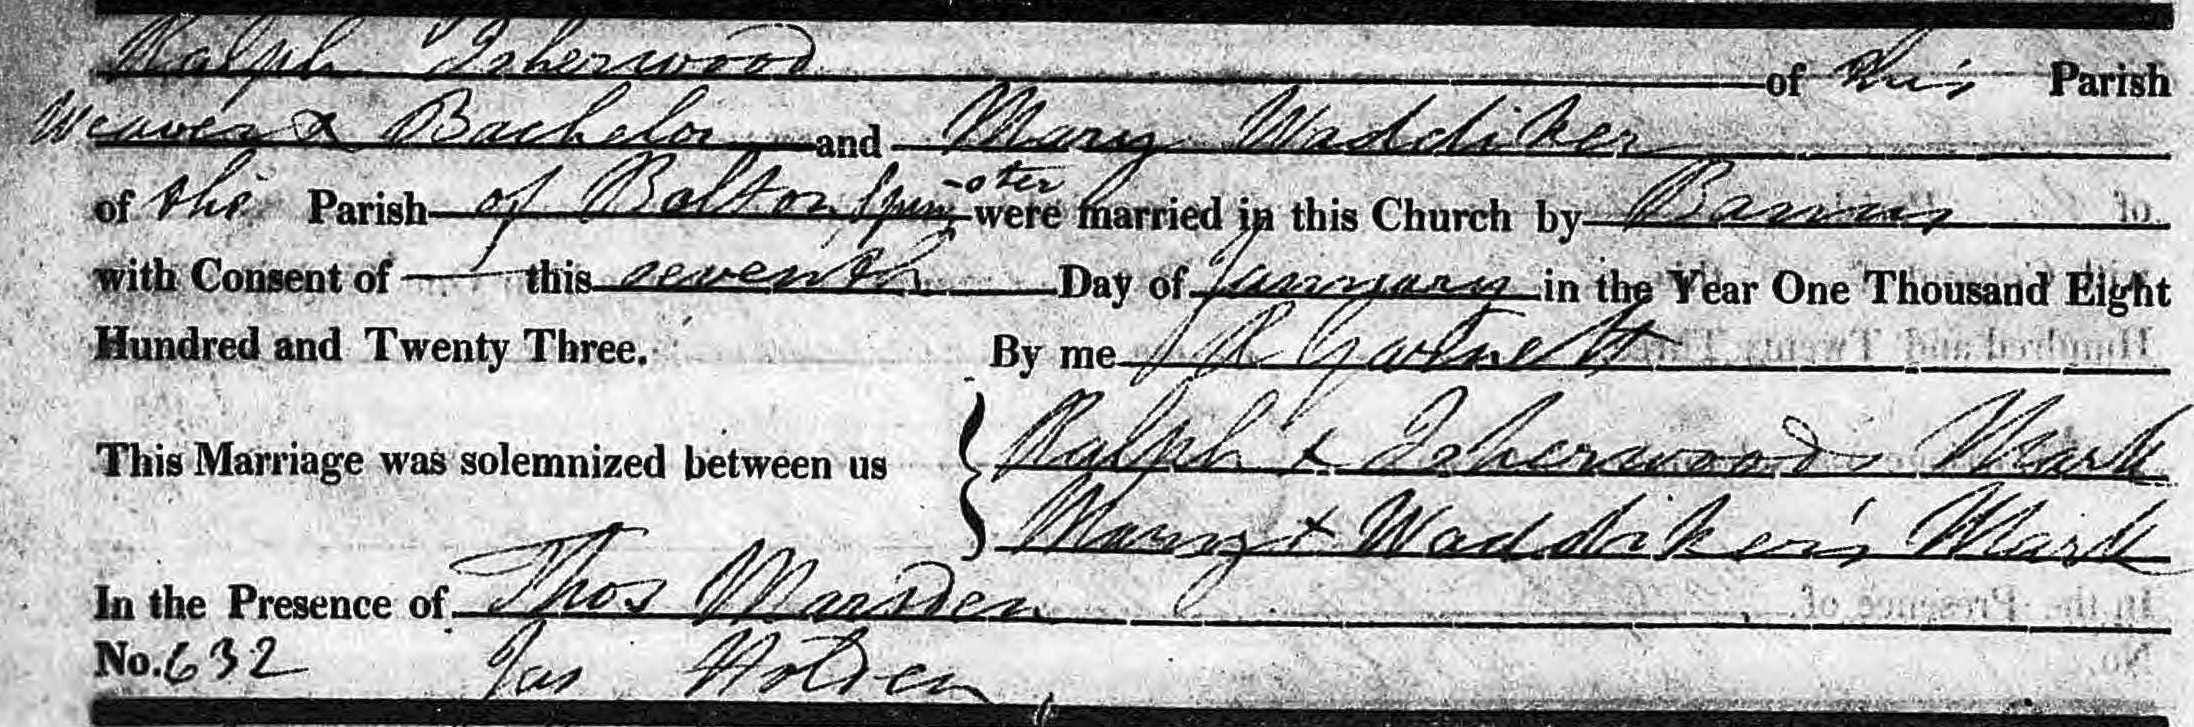 Ralph Isherwood of this Parish
Weaver & Bachelor and Mary Waddiker
of the Parish of Bolton Spinster were married in this Church by Banns
with Consent of this seventh Day of January in the Year One Thousand Eight
Hundred and Twenty Three. By me J R Garnett
This Marriage was solemnized between us { Ralph x Isherwoods Mark
Mary x Waddiker's Mark
In the Presence of Thos Marsden
No. 632 Jas Holden